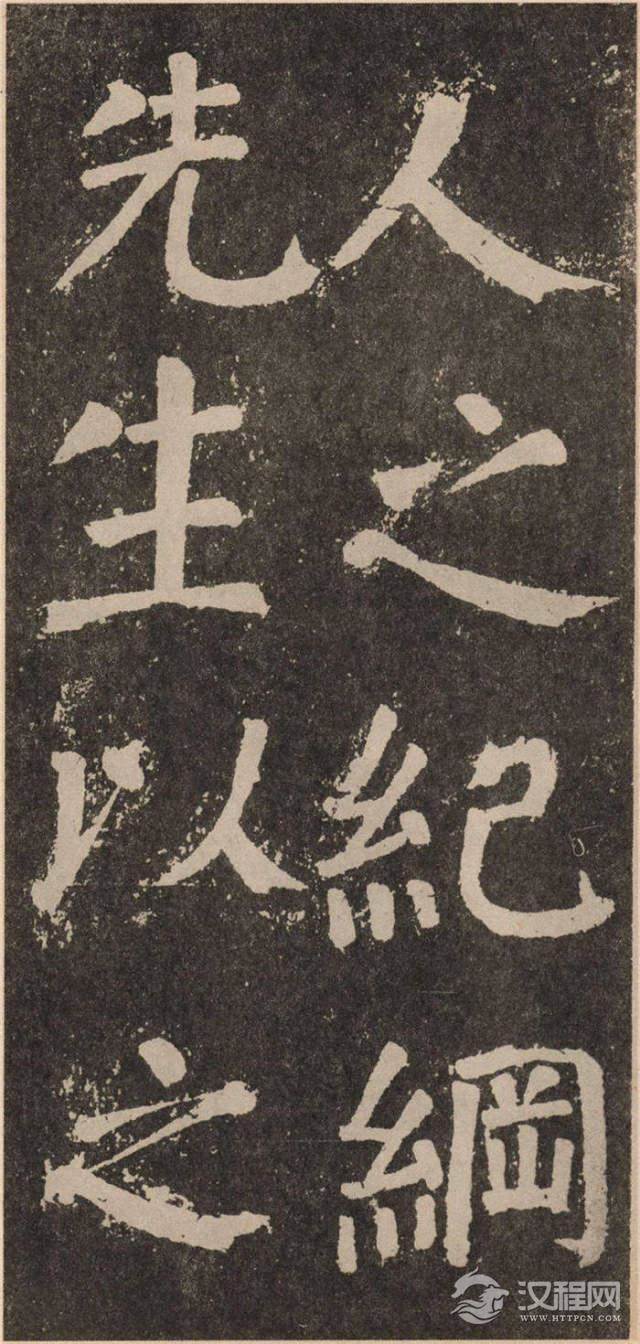 人之紀綱
先生以之
汉程网
WWW.HTTPCN.COM